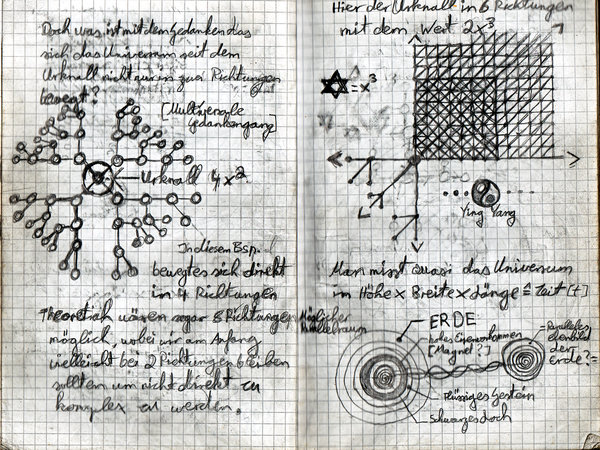 Doch was ist mit dem Gedanken das
sich das Universum seit dem
Urknall nicht nur in zwei Richtungen
bewegt?
[Multiversale
Gedankengang]
Urknall 4x²
In diesem Bsp.
bewegt es sich direkt
in 4 Richtungen
Theoretish wären sogar 8 Richtungen
möglich, wobei wir am Anfang
vielleicht bei 2 Richtungen bleiben
sollten um nicht direkt zu
komplex zu werden.
Hier der Urknall in 6 Richtungen
mit dem Wert 2x³
= x³
Ying Yang
Man misst quasi das Universum
im Höhe x Breite x Länge ≙ Zeit [t]
Möglicher
ERDE
[Magnet?]
= Paralleles
der
Erde? =
Flüssiges Gestein
Schwarzes Loch